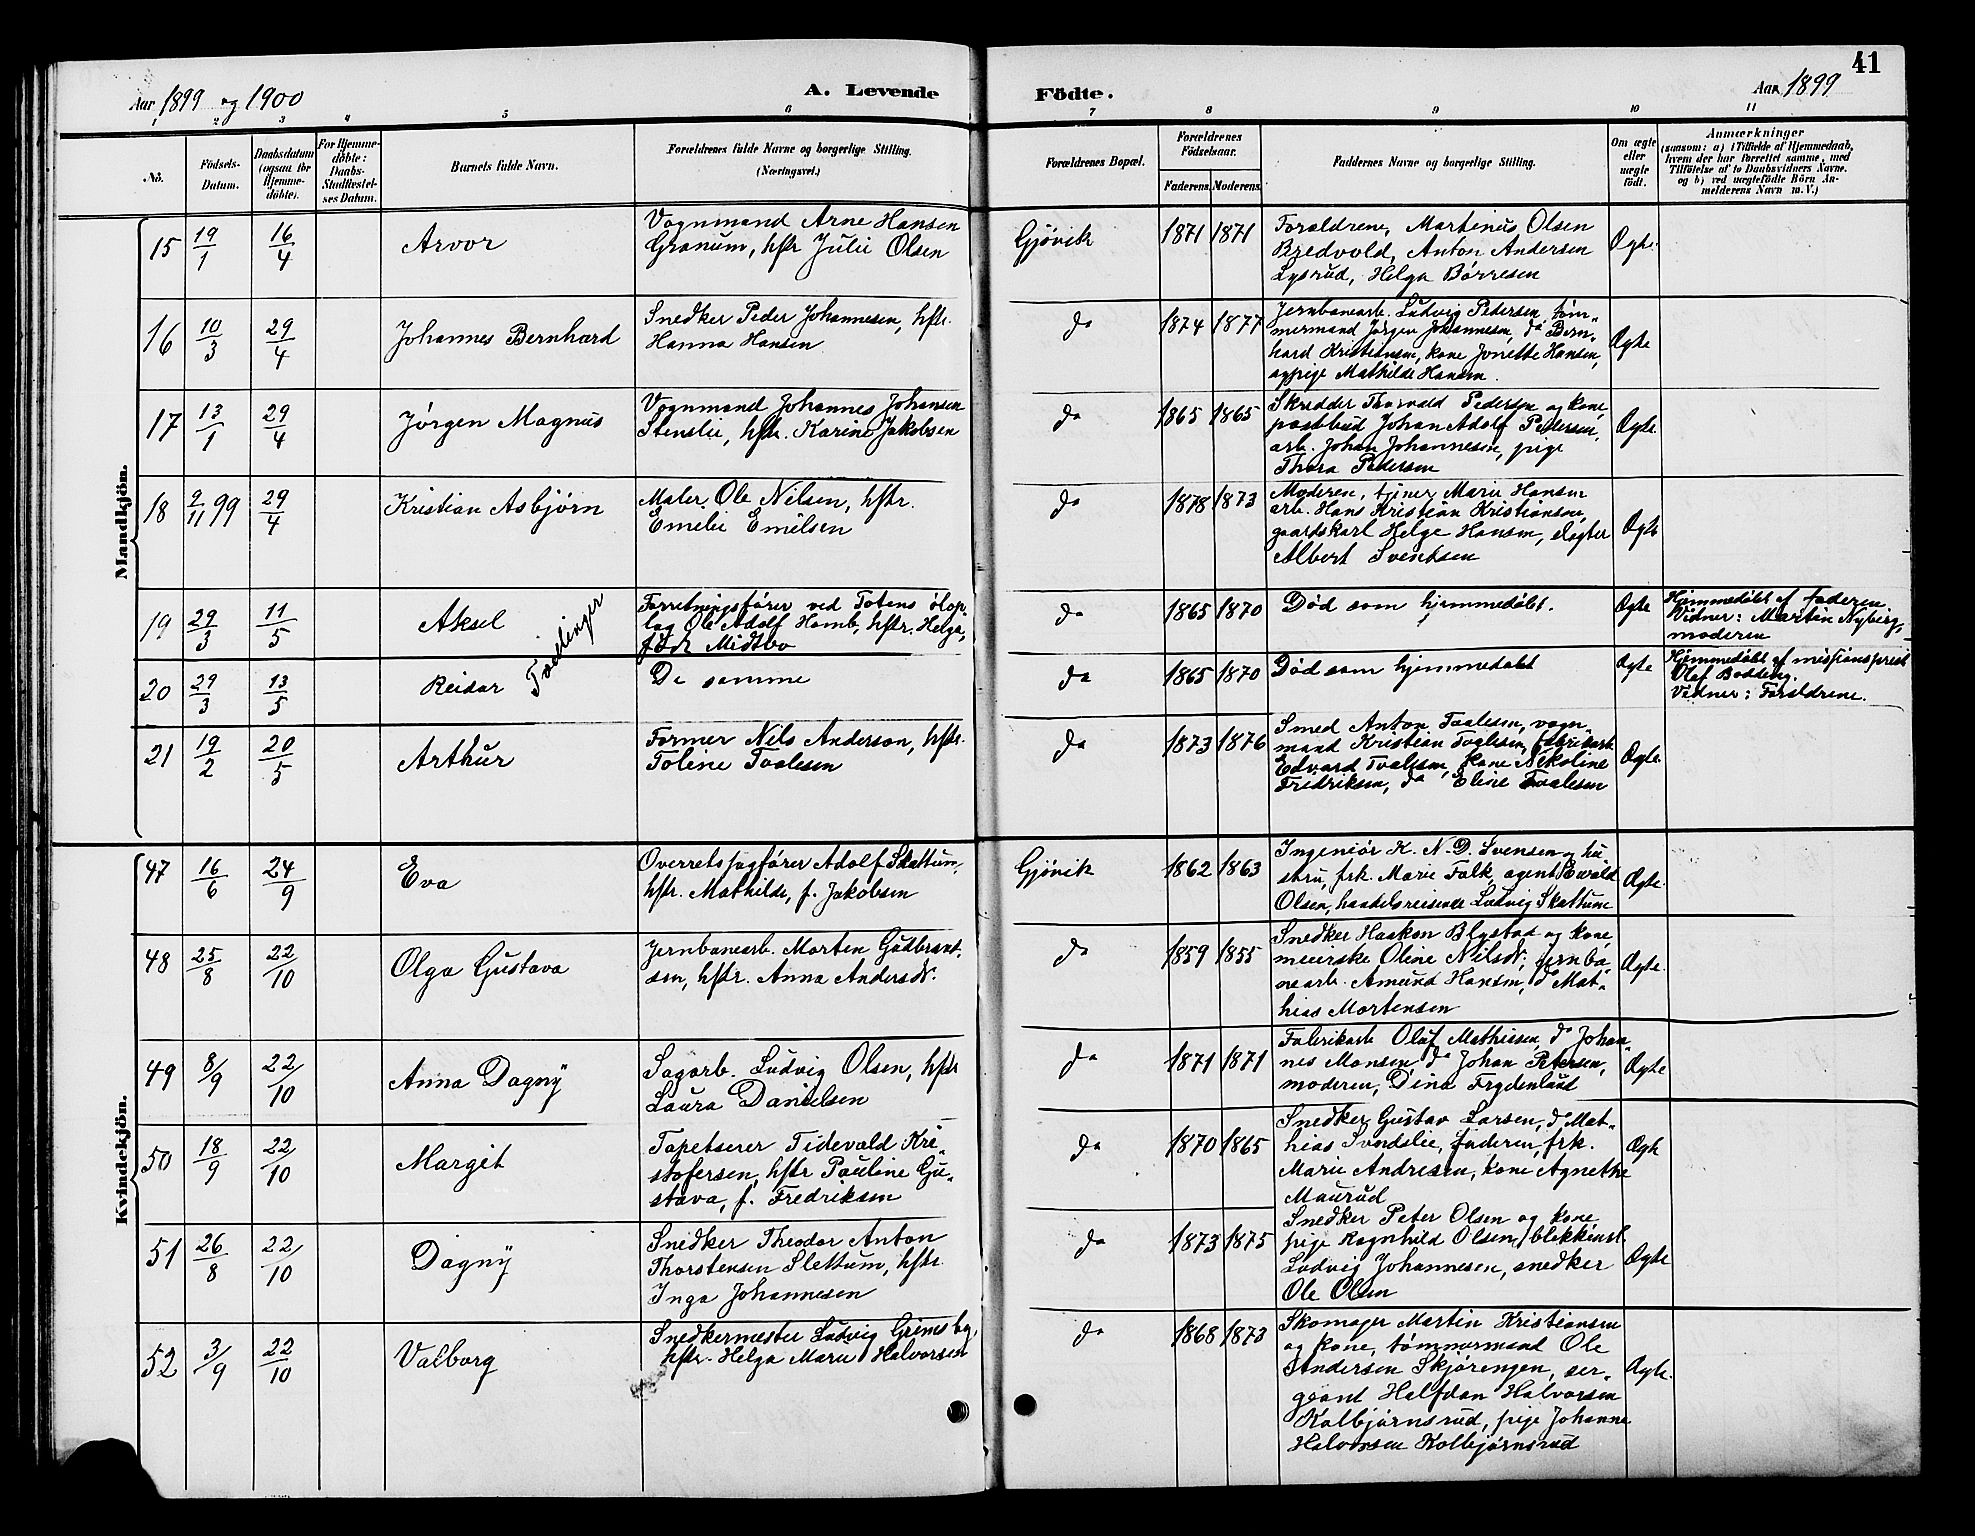 41
Aar 1899 og 1900
A. Levende
Födte.
Aar 1899
1 2 3 4 5 6 7 8 9 10 11
No.
Födsels-
Datum.
Daabsdatum
(ogsaa for
Hjemme-
döbte).
For Hjemme-
döbte:
Daabs-
Stadfæstel-
ses Datum.
Barnets fulde Navn.
Forældrenes fulde Navne og borgerlige Stilling.
(Næringsvei.)
Forældrenes Bopæl.
Forældrenes
Födselsaar.
Faderens. Moderens.
Faddernes Navne og borgerlige Stilling.
Om ægte
eller
uægte
födt.
Anmærkninger
(saasom: a) i Tilfælde af Hjemmedaab,
hvem der har forrettet samme, med
Tilföielse af to Daabsvidners Navne.
og b) ved uægtefödte Börn An-
melderens Navn m. V.)
Mandkjön.
15 19/1 16/4 Arvor
Vognmand Arne Hansen
Granum, hstr Julie Olsen
Gjövik 1871 1871
Forældrene, Martinus Olsen
Bredvold, Anton Andersen
Lysrud, Helga Börresen
Ægte.
16 10/3 29/4 Johannes Bernhard
Snedker Peder Johannesen, hstr.
Hanna Hansen
do 1874 1877
Jernbanearb. Ludvig Pedersen, töm-
mermand Jörgen Johannesen, do Bern-
hard Kristiansen, kone Jonette Hansen,
sypige Mathilde Hansen.
Ægte
17 13/1 29/4 Jørgen Magnus
Vognmand Johannes Johansen
Stenslie, hstr. Karine Jakobsen
do 1865 1865
Skredder Thorvald Pedersen og kone,
postbud Johan Adolf Pedersen,
arb. Johan Johannesen, pige
Thora Pedersen
Ægte.
18 2/11 99 29/4 Kristian Asbjørn
Maler Ole Nilsen, hstr.
Emelie Emilsen
do 1878 1873
Moderen, tjener Marie Hansen
arb. Hans Kristian Kristiansen,
gaardskarl Helge Hansen, slagter
Albert Svendsen
Ægte
19 29/3 11/5 Aksel
Tvillinger
Forretningsfører ved Totens ölop-
lag Ole Adolf Homb, hstr. Helga,
föd Midtbö
do 1865 1870
Död som hjemmedöbt.
Ægte
Hjemmedöbt af faderen
Vidner: Martin Nyberg,
moderen
20 29/3 13/5 Reidar
De samme
do 1865 1870
Död som hjemmedöbt
Ægte
Hjemmedöbt af missionsprest
Olaf Bodding.
Vidner: Forældrene.
21 19/2 20/5 Arthur
Former Nils Anderson, hstr.
Toline Taalesen
do 1873 1876
Smed Anton Taalesen, vogn-
mand Kristian Taalesen, fabrikarb.
Edvard Taalesen, kone Nikoline
Fredriksen, do Eline Taalesen
Ægte.
Kvindekjön.
47 16/6 24/9 Eva
Overretssagfører Adolf Skattum,
hstr. Mathilde, f. Jakobsen
Gjövik 1862 1863
Ingeniör K. N. D. Svensen og hu-
stru, frk. Marie Falk, agent Evald
Olsen, handelsreisende Ludvig Skattum
Ægte.
48 25/8 22/10 Olga Gustava
Jernbanearb. Morten Gudbrant-
sen, hstr. Anna Andersdr.
do 1859 1855
Snedker Haakon Blystad og kone,
meierske Oline Nilsdr, jernba-
nearb. Amund Hansen, do Mat-
hias Mortensen
Ægte.
49 8/9 22/10 Anna Dagny
Sagarb. Ludvig Olsen, hstr
Laura Danielsen
do 1871 1871
Fabrikarb Oluf Mathisen, do Johan-
nes Monsen, do Johan Petersen,
moderen, Dina Frydenlund
Ægte
50 18/9 22/10 Margit
Tapetserer Tidevald Kri-
stofersen, hstr Pauline Gu-
stava, f. Fredriksen
do 1870 1865
Snedker Gustav Larsen, do Mat-
hias Svendslie, faderen, frk.
Marie Andresen, kone Agnethe
Maurud
Ægte
51 26/8 22/10 Dagny
Snedker Theodor Anton
Thorstensen Slettum, hstr.
Inga Johannesen
do 1873 1875
Snedker Peter Olsen og kone
pige Ragnhild Olsen, blikkensl.
Ludvig Johannesen, snedker
Ole Olsen
Ægte
52 3/9 22/10 Valborg
Snedkermester Ludvig Grimsby,
hstr. Helga Marie Halvorsen
do 1868 1873
Skomager Martin Kristiansen
og kone, tömmermand Ole
Andersen Skjörengen, ser-
geant Halfdan Halvorsen
Kolbjørnsrud, pige Johanne
Halvorsen Kolbjørnsrud
Ægte.